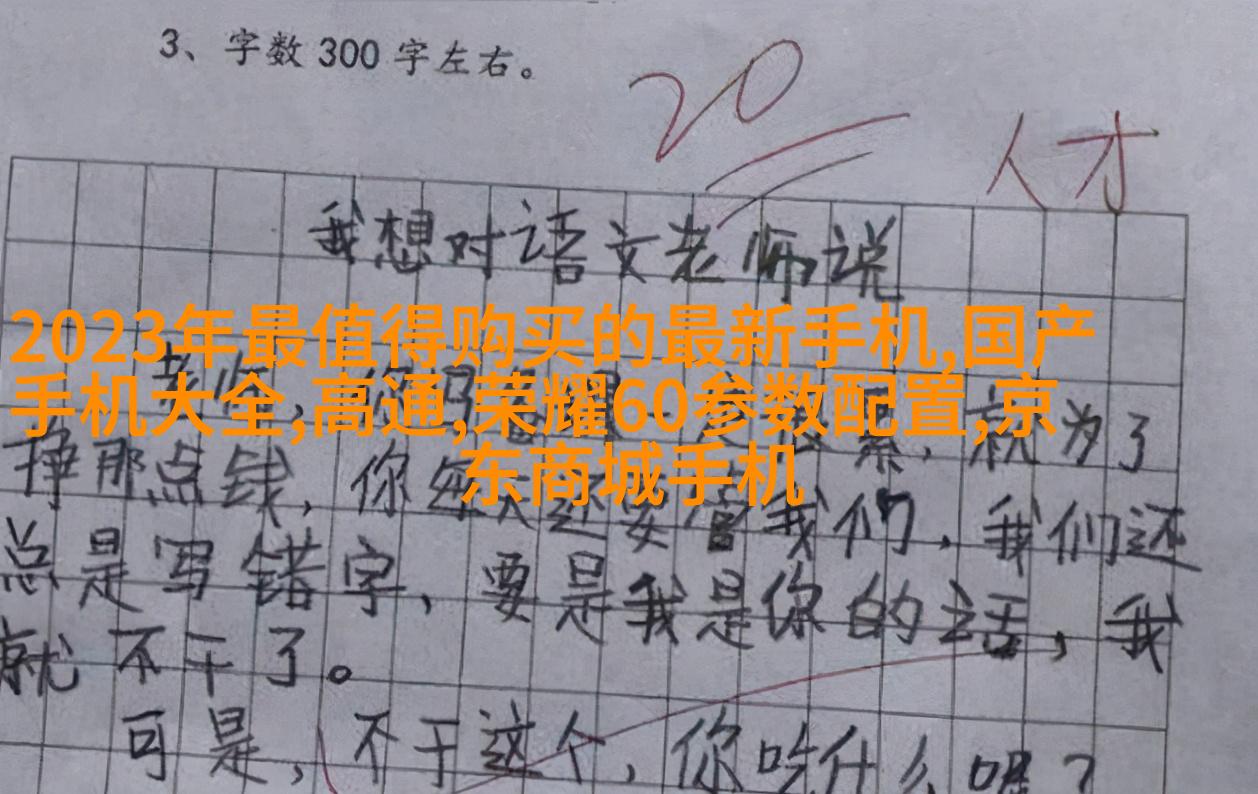 3、字数 300 字左右。
20
人才
我想对语文老师说
2023年最值得购买的最新手机,国产
手机大全,高通,荣耀60参数配置,京
东商城手机
老师,你
,就为了
挣那点钱,你每天还要管我们,我们还
总是写错字,要是我是你的话,我
就不干了。
可是,不干这个,你吃什么呢?